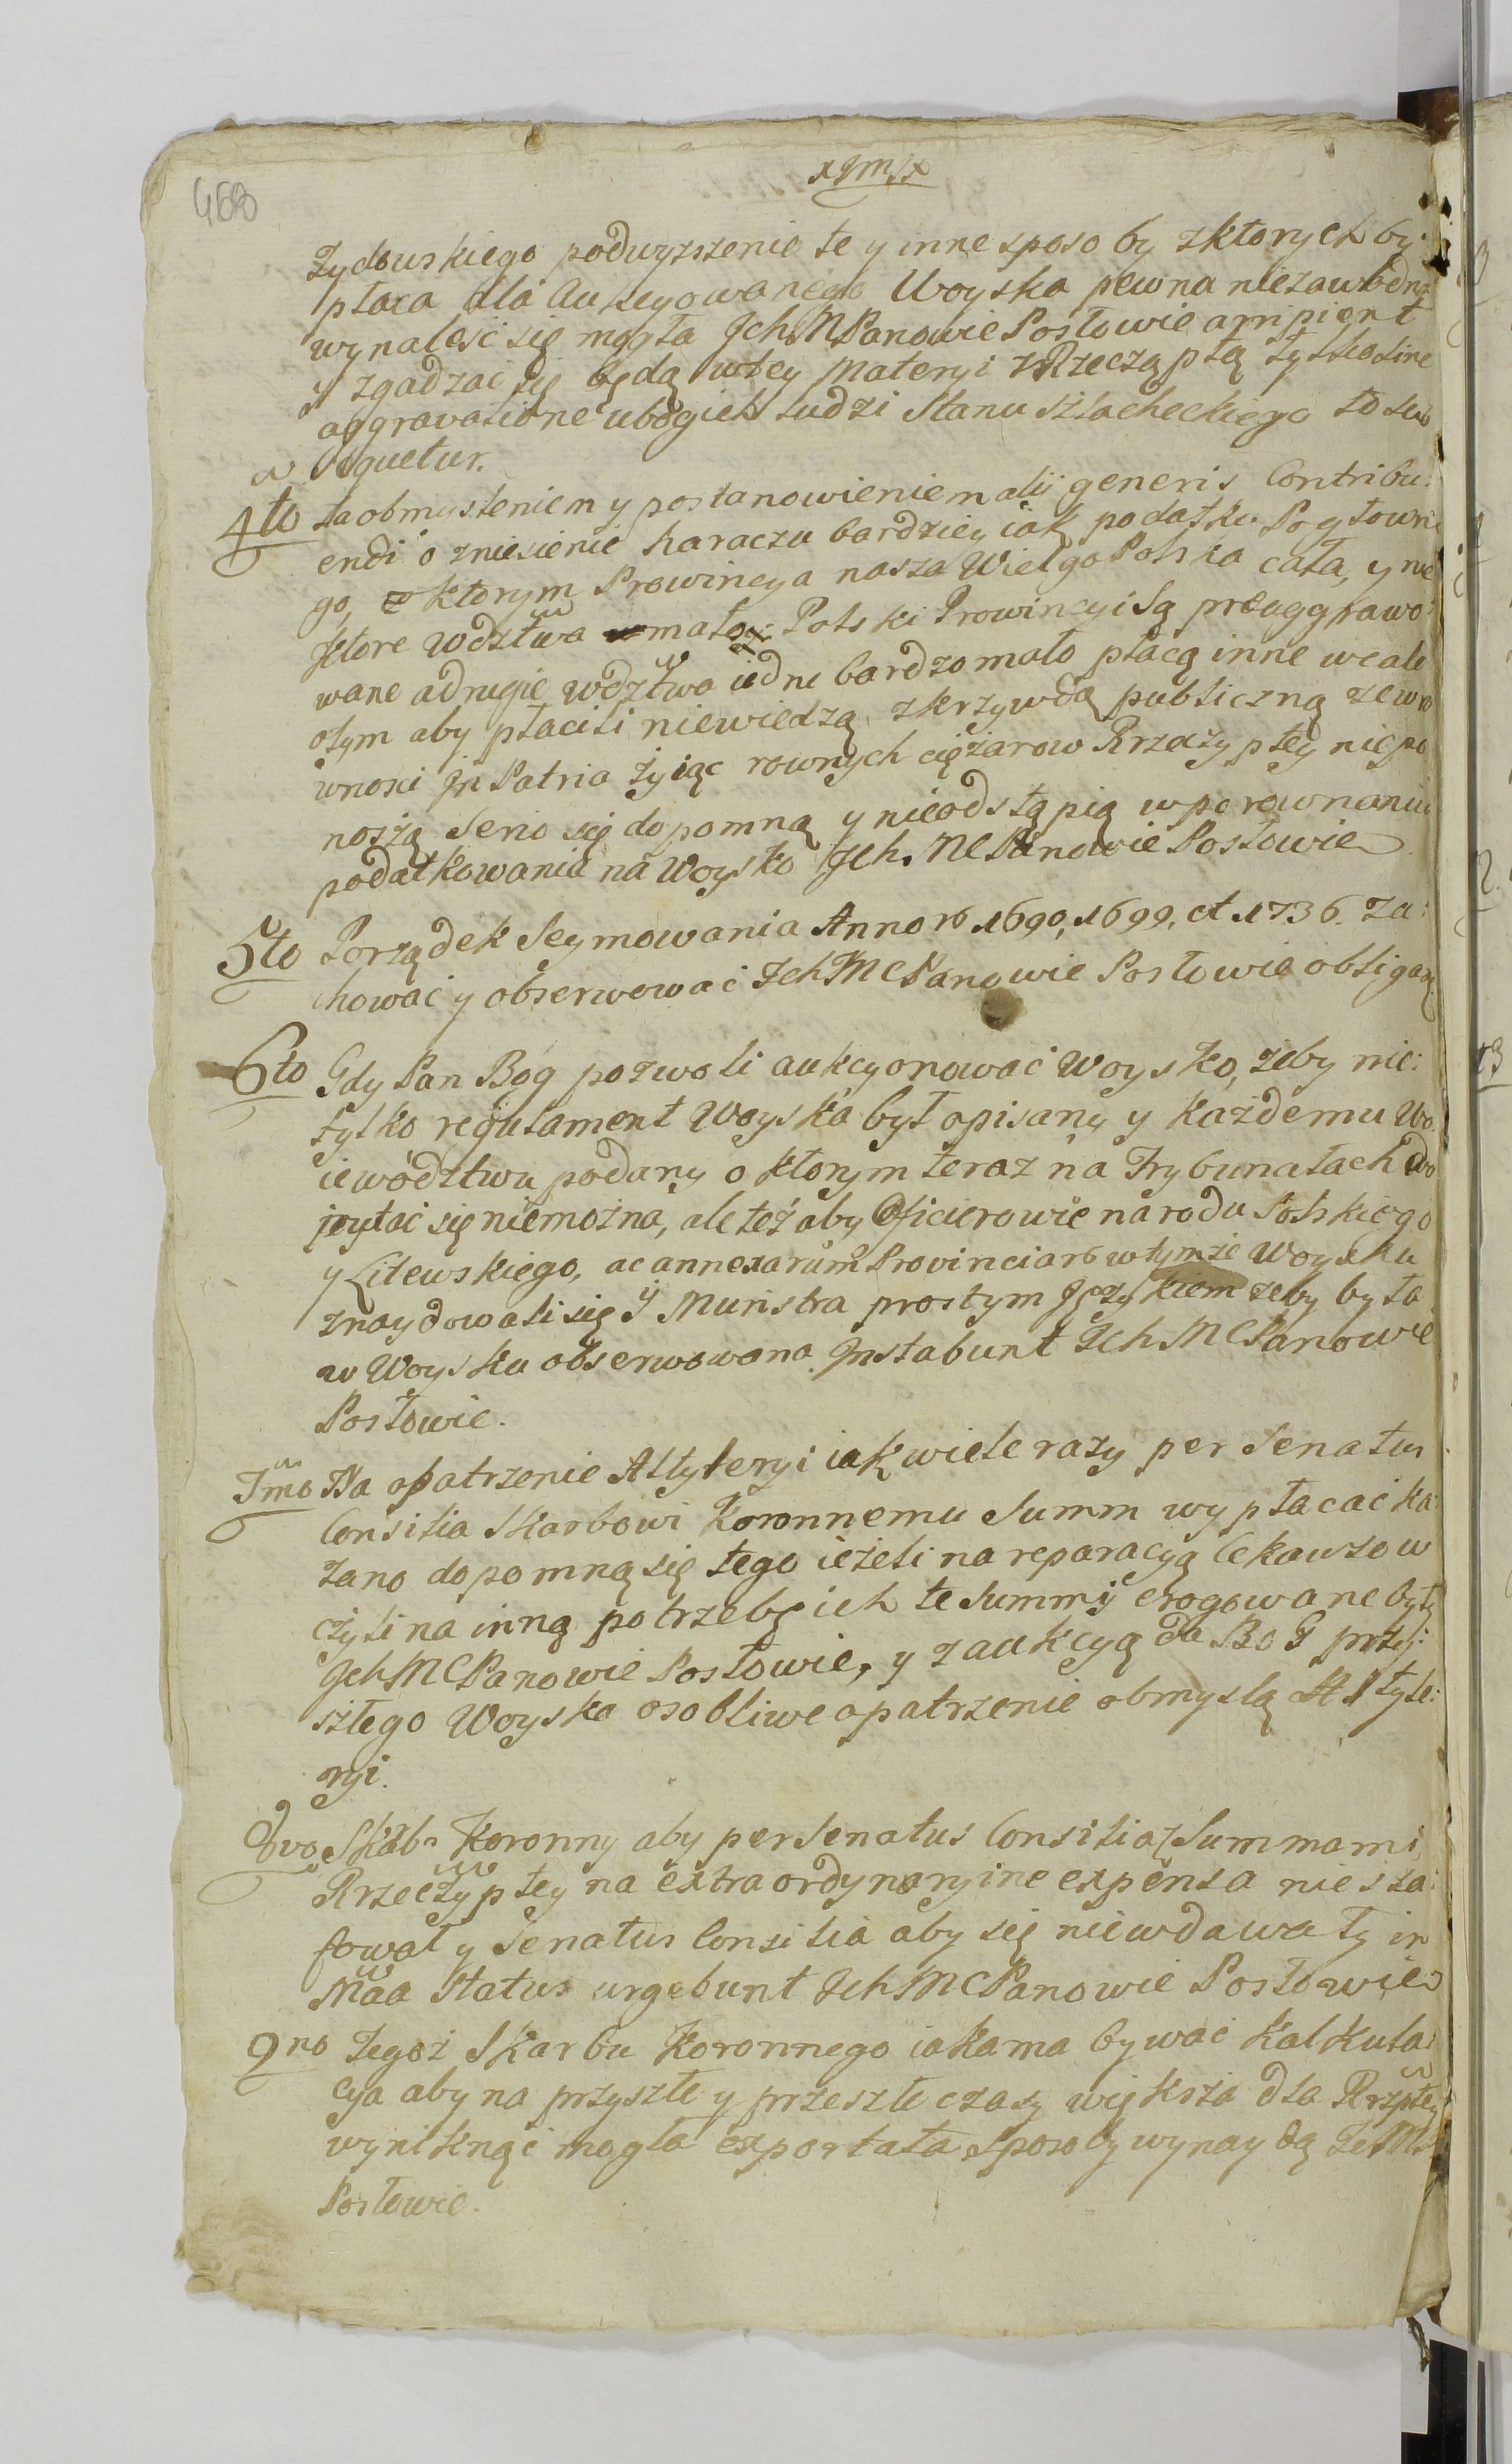 468
xJmJx
Zydowskiego podwyzszenie te y inne sposoby zktorych by:
płaca dla Aukcyowanego Woyska pewna niezawodna
wynaleść się mogła Jch MPanowie Posłowie arripient
y zgadzać się będą wtey Materyi zRzecząptą tylko sine
aggravatione ubogich ludzi Stanu Szlacheckiego to sub
sequetur.
4to Za obmysleniem y postanowieniem alij generis Contribu:
endi o zniesienie haraczu bardziey iak podatku Pogłowne
go, w ktorym Prowincya nasza WielgoPolska cała, y nie
ktore wdztwa małey Polski Prowincyi Są praeaggrawo
wane adrugie wdztwa iedne bardzo mało płacą inne wcale
otym aby płacili niewiedzą zkrzywdą publiczną zewro
wnosci Jn Patria żyiąc rownych ciężarow Rzeczyptey niepo
noszą Serio się dopomną y nieodstąpią wporownaniu
podatkowania na Woysko Jch. MCPanowie Posłowie
5to Porządek Seymowania Annor 1690, 1699, et 1736. za:
chować y obserwować JchMCPanowie Posłowie obligan.
6to Gdy Pan Bog pozwoli aukcyonować Woysko, żeby nie:
tylko regulament Woyska był opisany y każdemu Wo
iewództwu podany o ktorym teraz na Trybunałach do
pytać się niemożna, ale też aby Oficierowie narodu Polskiego
y Litewskiego, ac annexarum Provinciar wtymże Woysku
znaydowali się y Munstra prostym Językiem zeby była
w Woysku obserwowana Jnstabunt JchMCPanowie
Posłowie.
7mo Na opatrzenie Altyleryi iak wiele razy per Senatus
Consilia Skarbowi Koronnemu Summ wypłacać ka:
zano dopomną się tego ieżeli na reparacyą Cekauzow
czyli na inną potrzebę ich te Summy erogowane były
JchMCPanowie Posłowie, y zaukcyą da BoG przy:
szłego Woyska osobliwe opatrzenie obmyslą Altyle:
ryi.
8vo Skarb Koronny aby per Senatus Consilia Summami
Rzeczyptey na extraordynaryine expensa nie sza:
fował y Senatus Consilia aby się niewdawały in
Maa Status urgebunt JchMCPanowie Posłowie
9no Tegoż Skarbu Koronnego iaka ma bywać Kalkula:
cya aby na przyszłe y przeszłe czasy większa dla Rzptey
wyniknąć mogła exportata Sposoby wynaydą
Posłowie.